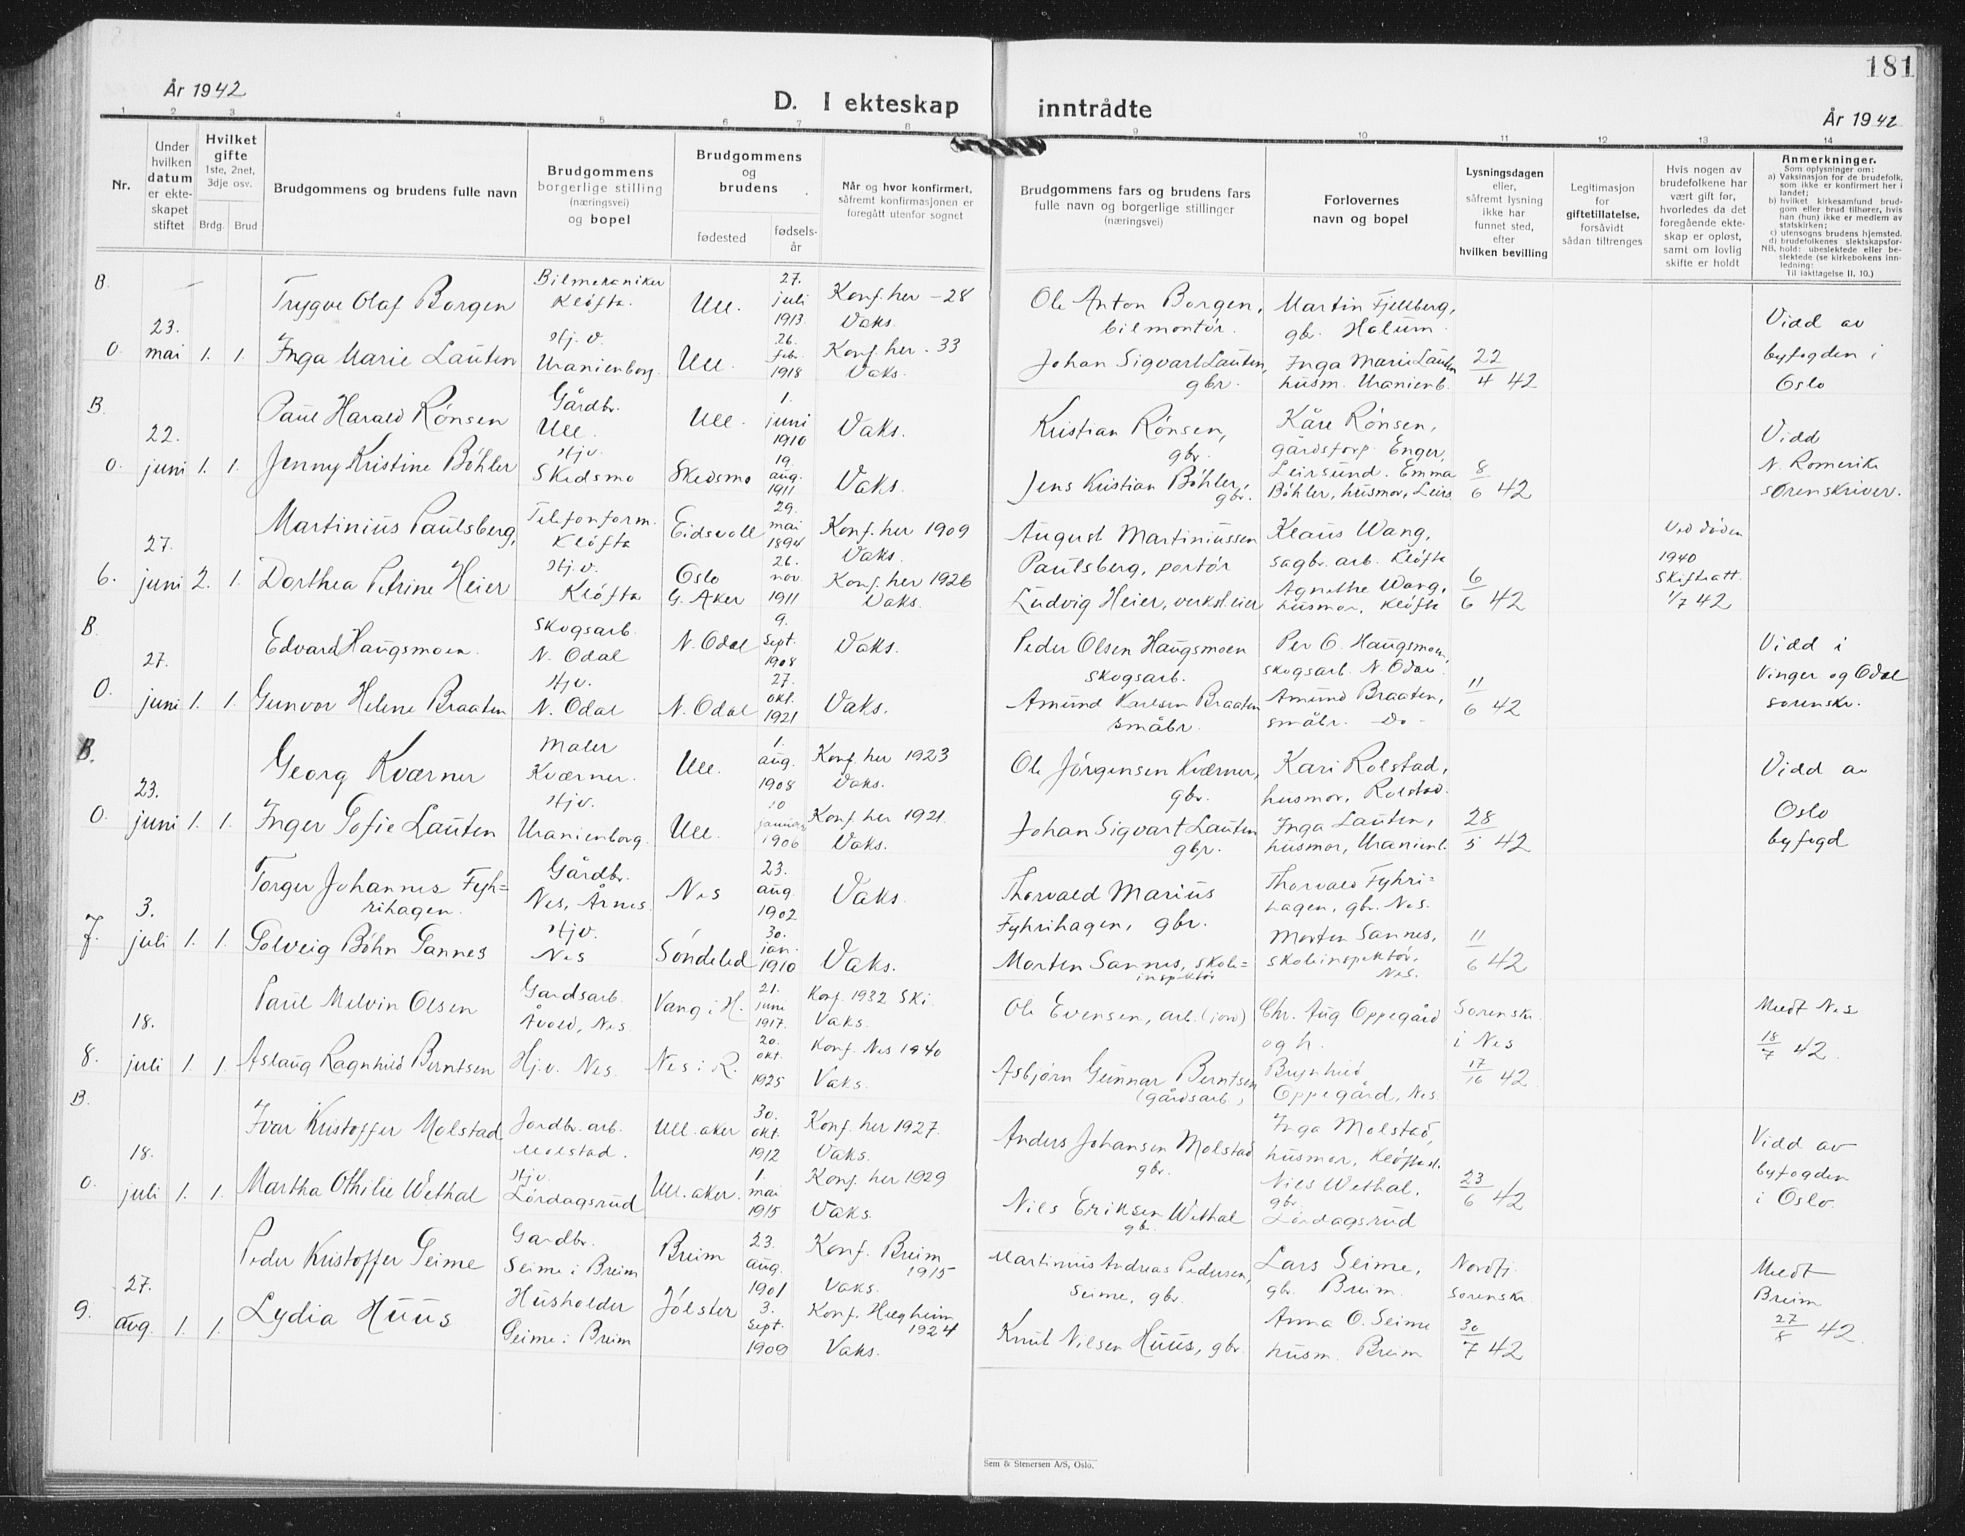 181
År 1942
D. I ekteskap inntrådte
År 1942
1 2 3 4 5 6 7 8 9 10 11 12 13 14
Nr.
Under
hvilken
datum
er ekte-
skapet
stiftet
Hvilket
gifte
1ste, 2net,
3dje osv.
Brdg. Brud
Brudgommens og brudens fulle navn
Brudgommens
borgerlige stilling
(næringsvei)
og bopel
Brudgommens
og
brudens
fødested
fødsels-
år
Når og hvor konfirmert,
såfremt konfirmasjonen er
foregått utenfor sognet
Brudgommens fars og brudens fars
fulle navn og borgerlige stillinger
(næringsvei)
Forlovernes
navn og bopel
Lysningsdagen
eller,
såfremt lysning
ikke har
funnet sted,
efter
hvilken bevilling
Legitimasjon
for
giftetillatelse,
forsåvidt
sådan tiltrenges
Hvis nogen av
brudefolkene har
vært gift før,
hvorledes da det
foregående ekte-
skap er opløst,
samt om lovlig
skifte er holdt
Anmerkninger.
Som oplysninger om:
a) Vaksinasjon for de brudefolk,
som ikke er konfirmert her i
landet;
b) hvilket kirkesamfund brud-
gom eller brud tilhører, hvis
han (hun) ikke er medlem av
statskirken;
c) utensogns brudens hjemsted.
d) brudefolkenes slektskapsfor-
NB. hold: ubeslektede eller be-
slektede (se kirkebokens inn-
ledning:
Til iakttagelse II. 10.)
B.
O.
23.
mai 1. 1.
Trygve Olaf Borgen
Bilmekaniker
Kløfta.
Ull.
27.
juli
1913.
Konf. her - 28
Vaks.
Ole Anton Borgen,
bilmontør.
Martin Fjellberg,
gbr. Holum.
Inga Marie Lauten
Hj. v.
Uranienborg.
Ull.
26.
feb.
1918
Konf. her. 33
Vaks.
Johan Sigvart Lauten,
gbr.
Inga Marie Lauten
husm. Uranienb.
22/4 42
Vidd av
byfogden i
Oslo
B.
O.
22.
juni 1. 1.
Paul Harald Rønsen
Gårdbr.
Ull.
Ull.
1.
juni
1910
Vaks.
Kristian Rønsen,
gbr.
Kåre Rønsen,
gårdsforp. Enger,
Jenny Kristine Bøhler
Hjv.
Skedsmo
Skedsmo
19.
aug.
1911
Vaks.
Jens Kristian Bøhler,
gbr.
Leirsund. Emma
Bøhler, husmor, Leirs
8/6 42
Vidd
N. Romerike
sorenskriver.
6.
27.
juni 2. 1.
Martinius Paulsberg,
Telefonform.
Kløfta
Eidsvoll
29.
mai
1894
Konf. her 1909
Vaks.
August Martiniussen
Paulsberg, portør
Klaus Wang,
sagbr. arb. Kløfta
Ved døden
1940
Skifteatt.
1/7 42
Dorthea Petrine Heier
Hj. v.
Kløfta
Oslo
G. Aker
26.
nov.
1911
Konf. her 1926
Vaks.
Ludvig Heier, verkst.eier
Agnethe Wang,
husmor, Kløfta
6/6 42
B.
O.
27.
juni 1. 1.
Edvard Haugsmoen.
Skogsarb.
N. Odal
N. Odal
9.
sept.
1908
Vaks.
Peder Olsen Haugsmoen
skogsarb.
Per O. Haugsmoen,
skogsarb. N. Odal
Gunvor Helene Braaten
Hjv.
N. Odal
N. Odal
27.
okt.
1921
Vaks.
Amund Karlsen Braaten
småbr.
Amund Braaten,
småbr. - Do -
11/6 42
Vidd i
Vinger og Odal
sorenskr.
B.
O.
23.
juni 1. 1.
Georg Kværner
Maler
Kværner.
Ull.
1.
aug.
1908
Konf. her 1923
Vaks.
Ole Jørgensen Kværner,
gbr.
Kari Rolstad,
husmor, Rolstad.
Inger Sofie Lauten
Hjv.
Uranienborg.
Ull.
10
januar
1906
Konf. her 1921.
Vaks.
Johan Sigvart Lauten
gbr.
Inga Lauten,
husmor, Uranienb.
28/5 42
Vidd av
Oslo
byfogd
7.
3.
juli 1. 1.
Torger Johannes Fyh-
rihagen.
Gårdbr.
Nes, Årnes.
Nes
23.
aug.
1902
Vaks.
Thorvald Marius
Fyhrihagen, gbr.
Thorvald Fyhri-
hagen, gbr. Nes.
Solveig Bøhn Sannes
Hjv.
Nes
Søndeled
30.
jan.
1910
Vaks.
Morten Sannes, skole-
inspektør
Morten Sannes,
skoleinspektør,
Nes.
11/6 42
8.
18.
juli 1. 1.
Paul Melvin Olsen
Gardsarb.
Åvold, Nes.
Vang i H.
21.
juni
1917.
Konf. 1932 Ski.
Vaks.
Ole Evensen, arb. (jord)
Chr. Aug Oppegård
og h.
Sorenskr.
i Nes
Aslaug Ragnhild Berntsen
Hj.v. Nes.
Nes i R.
20.
okt.
1925
Konf. Nes 1940
Vaks.
Asbjørn Gunnar Berntsen
(gårdsarb.)
Brynhild
Oppegård, Nes
17/16 42
Medt Nes
18/7 42.
B.
O.
18.
juli 1. 1.
Ivar Kristoffer Molstad
Jordbr. arb.
Molstad.
Ull.aker
30.
okt.
1912
Konf. her 1927.
Vaks.
Anders Johansen Molstad
gbr.
Inga Molstad,
husmor, Kløfta st.
Martha Othilie Wethal
Hjv.
Lørdagsrud
Ull.aker.
1.
mai
1915
Konf. her 1929
Vaks.
Nils Eriksen Wethal
gbr.
Nils Wethal,
gbr.
Lørdagsrud
23/6 42
Vidd av
byfogden
i Oslo.
9.
27.
aug. 1. 1.
Peder Kristoffer Seime
Gardbr.
Seime i Breim
Breim
23.
aug.
1901
Konf. Breim
1915
Vaks.
Martinius Andreas Pedersen,
Seime, gbr.
Lars Seime,
gbr. Breim.
Nordfj.
sorenskr.
Lydia Huus
Husholder
Seime i Breim
Jølster
3.
sept.
1909
Konf. Helgheim
1924
Vaks.
Knut Nilsen Huus, gbr.
Anna O. Seime
husm. Breim
30/7 42
Medt
Breim
27/8 42.
Sem & Stenersen A/S, Oslo.